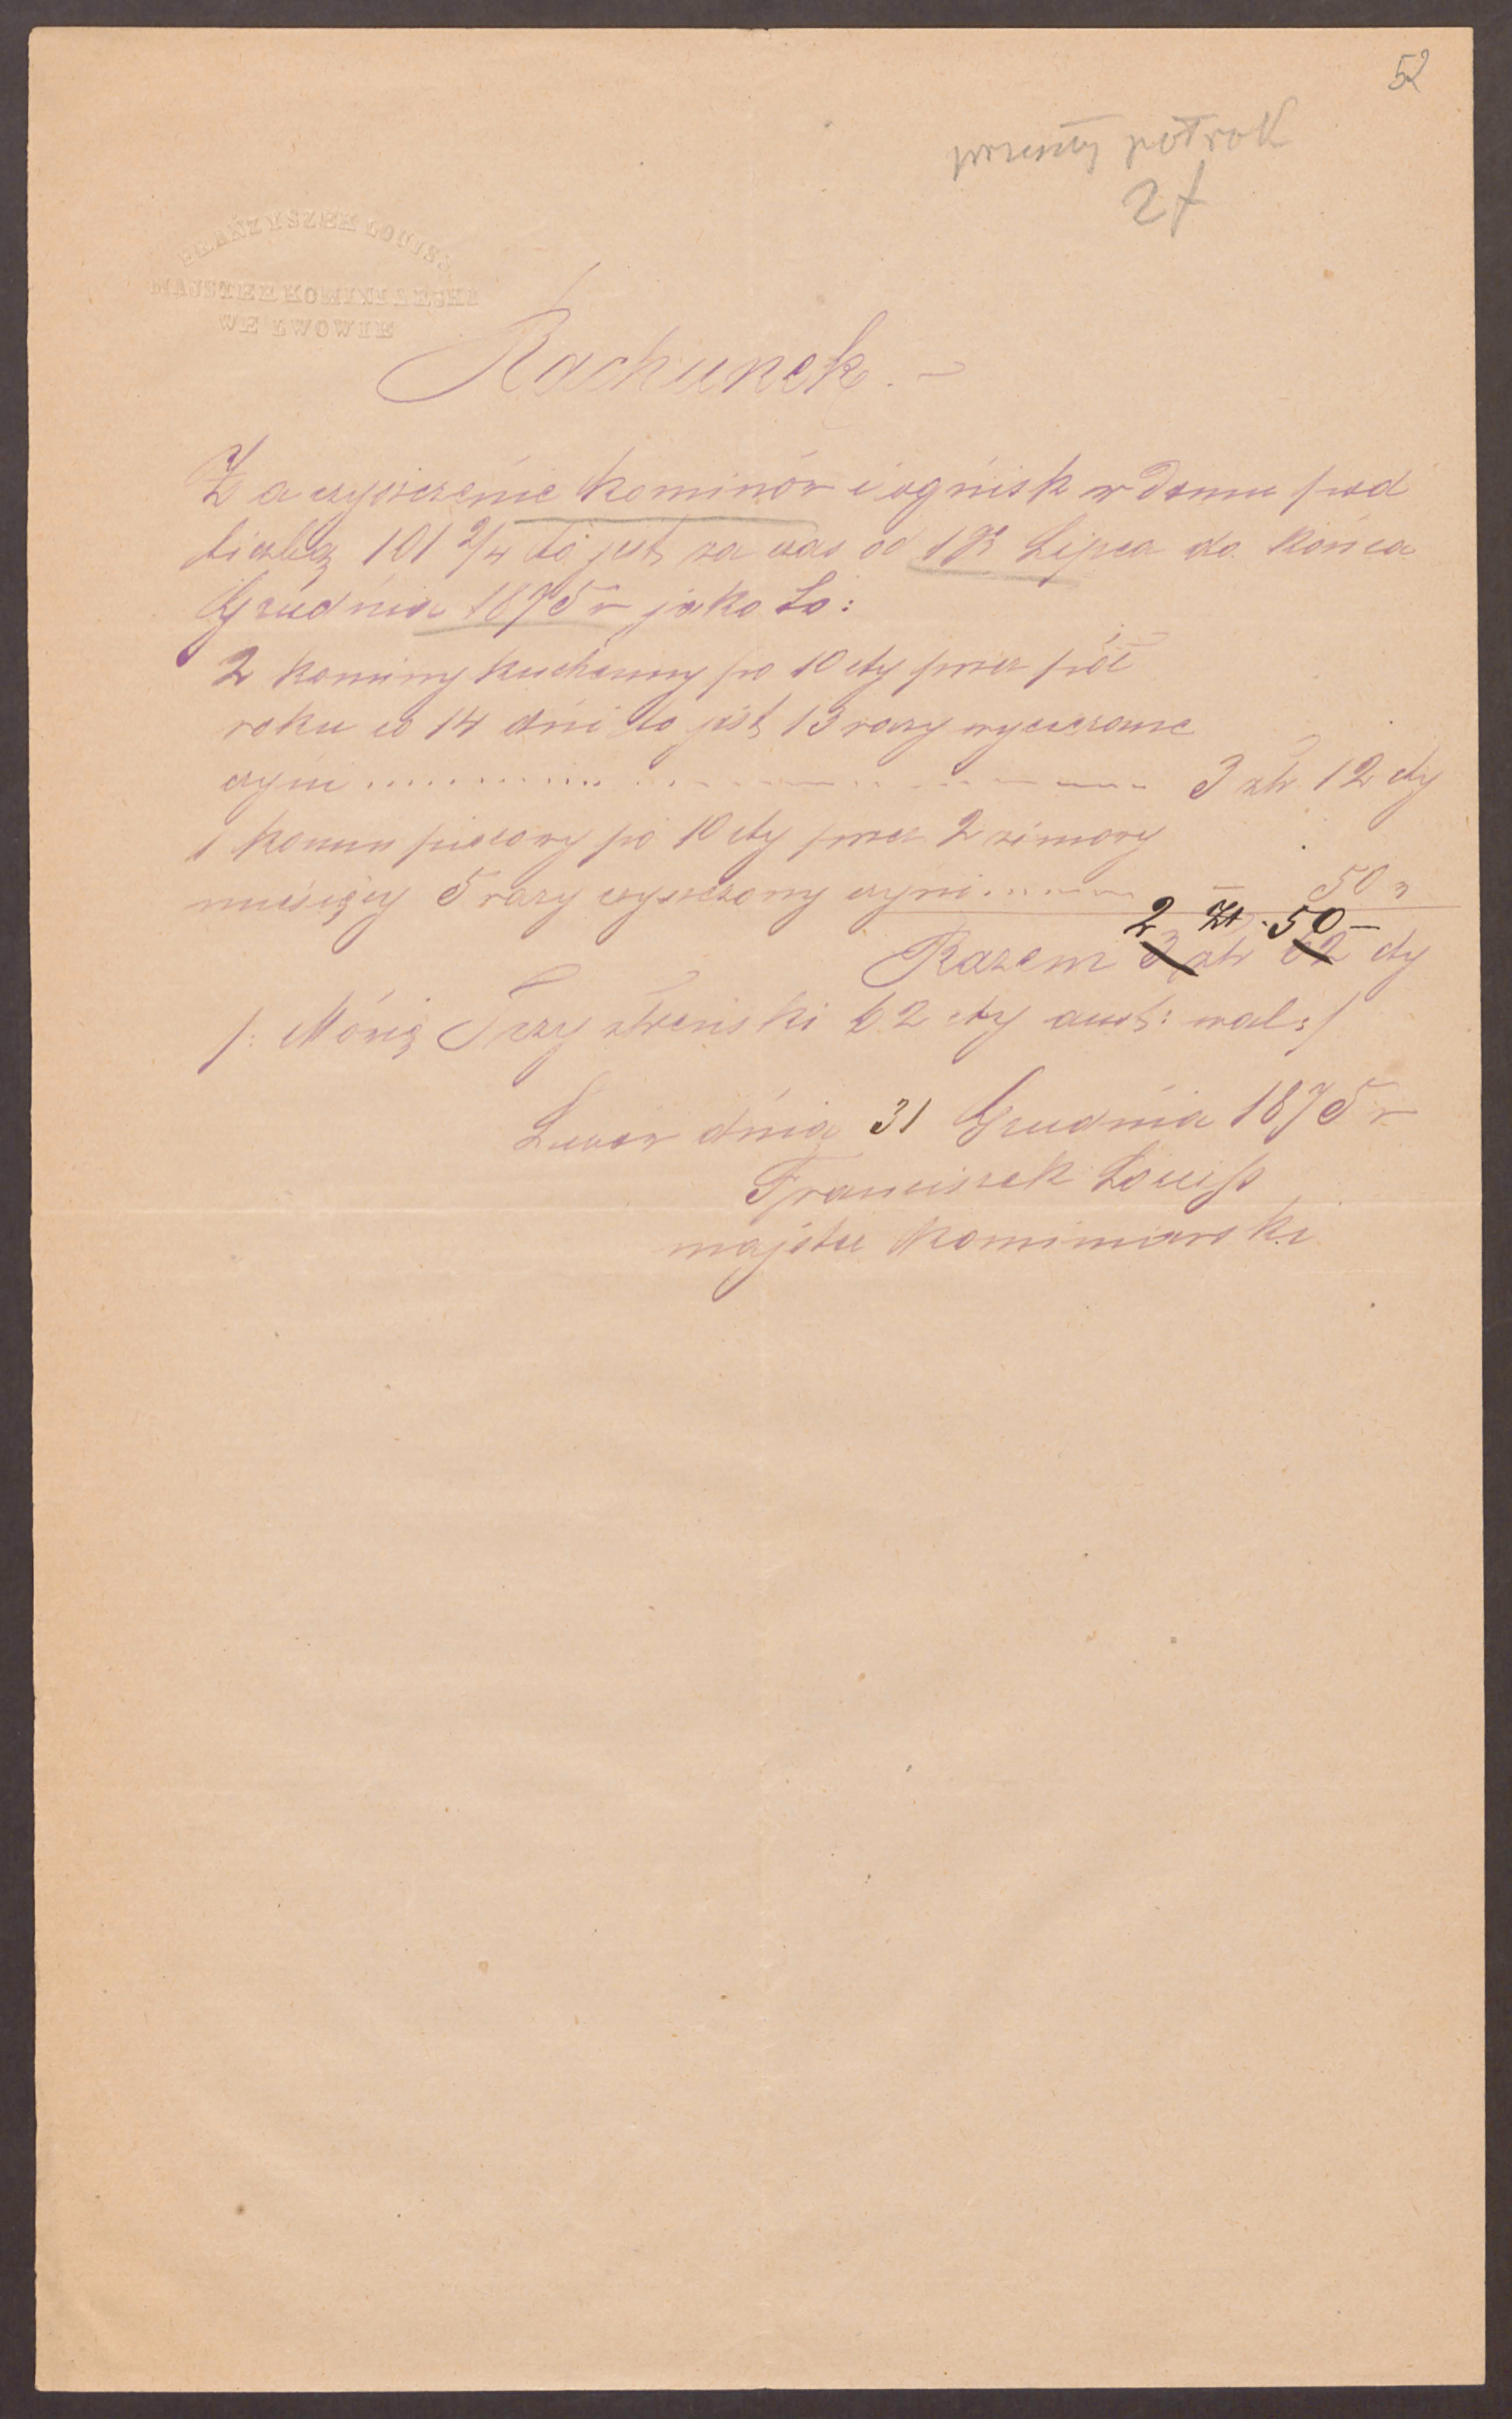 52
przeszły połrok
2 ł
FRANZYSZEK LOUISS
MAJSTER KOMINIARSKI
WE LWOWIE
Rachunek. –
Za czyszczenie kominów i ognisk w domu pod
liczbą 101 2/4 to jest za czas od 1go Lipca do końca
Grudnia 1875 r jako to:
2 kominy kuchenny po 10 cty przez pół
roku co 14 dni to jest 13 razy
czyni .......... 3 złr 12 cty
1 komin piecowy po 10 cty przez 2 zimowy
miesięcy 5 razy czyszczony czyni ........ 50 "
2 Zł. 50 –
Razem 3 złr 62 cty
/: Mówię Trzy złreński 62 cty aust: wal:/
Lwów dnia 31 Grudnia 1875 r
Franciszek Louiss
majster kominiarski